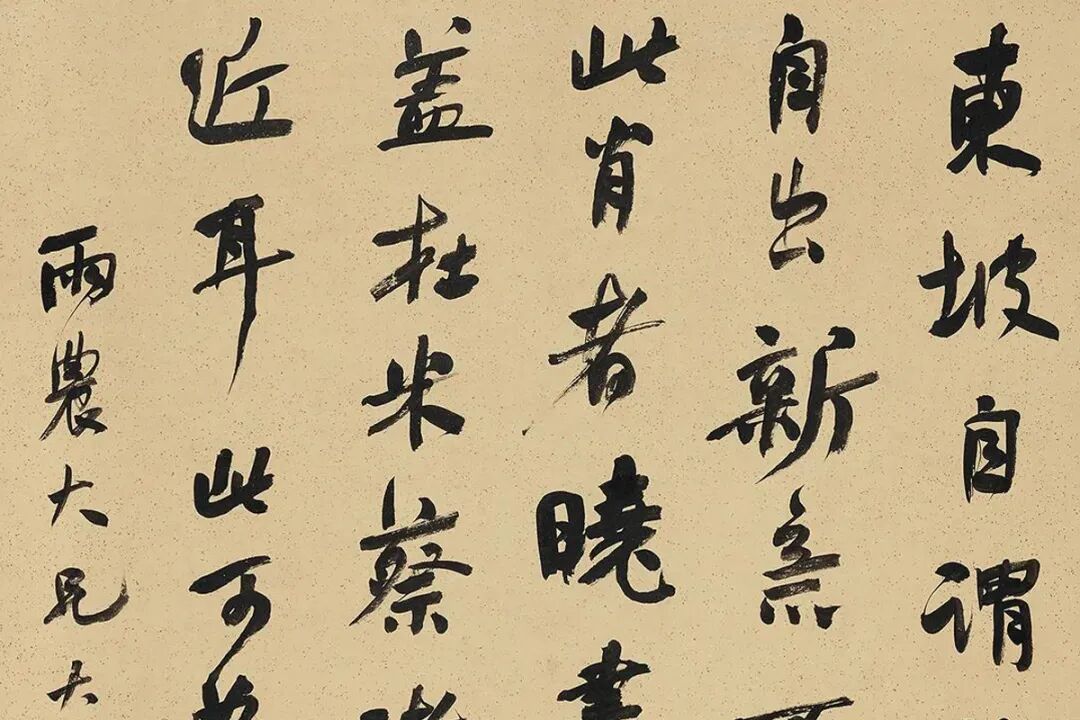 東坡自謂
自出新意
此肖者曉書
盖杜米蔡
近耳此可
雨農大兄大